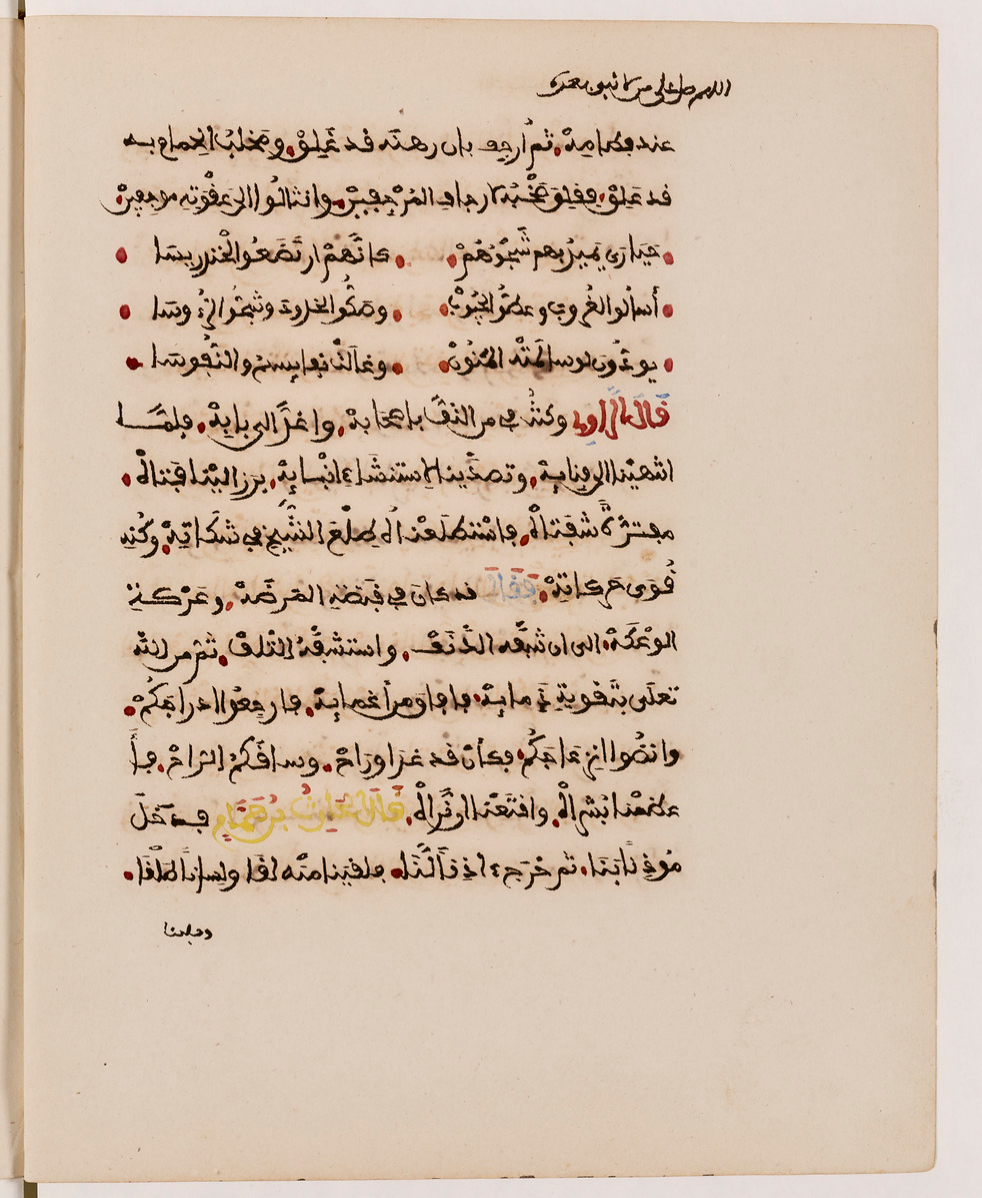 اللهم صل على من لا نبي بعده
عند فطامه، ثم أرجف بان رهنه قد غلق، ومخلب الحمام به
قد علق، فقلق صحبه لارجاف المرجفين، وانثالوا الى عقوته موجفين،
حيارى يميد بهم شجوهم كانهم ارتضعوا الخندريسا
أسالوا الغروب وعطوا الجيوب وصكوا الخدود وشجوا الرءوسا
يودون لو سالمته المنون وغالت نفايسهم والنفوسا
قال الراوي وكنت في من التف باصحابه، واغذ الى بابه، فلما
انتهينا الى فنايه، وتصدينا لاستنشاء انبايه، برز الينا فتاه،
مفترة شفتاه، فاستطلعناه طلع الشيخ في شكاته، وكنه
قوى حركاته، فقال قد كان في قبضة المرضة، وعركة
الوعكة، الى ان شفه الدنف، واستشفه التلف، ثم من الله
تعلى بتقوية ذمايه، فافاق من أغمايه، فارجعوا ادراجكم،
وانضوا انزعاجكم، فكأن قد غدا وراح، وساقكم الراح، فأ
عظمنا بشراه، واقترحنا ان نراه، قال الحارث بن همام فدخل
موذنا بنا، ثم خرج ءاذنا لنا، فلقينا منه لقا ولسانا طلقا،
وجلسنا